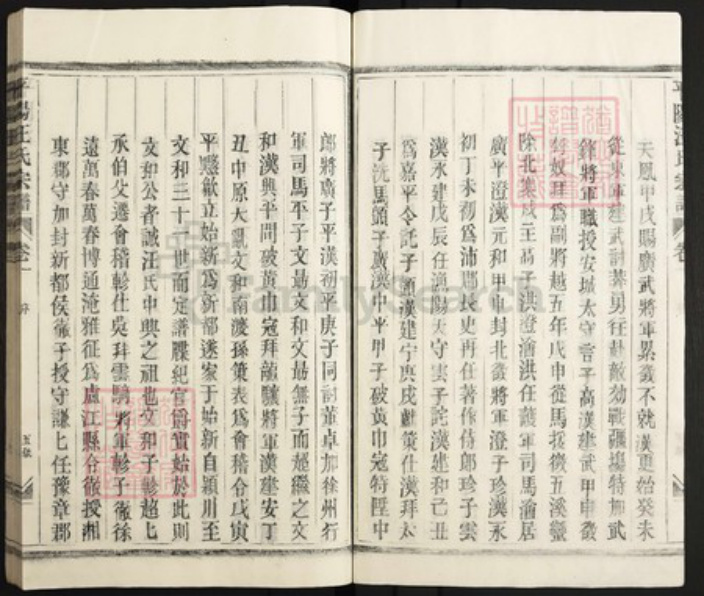 天鳳甲戌賜廣武將軍累發不就漢更始癸未
從東軍建武討莽男征赴敵効戰疆塲特加武
鋒將軍職授安城太守言子高漢建武甲申發
匈奴拜爲副將越五年戊申從馬援微五溪蠻
除北襲成王高子洪澄滄洪任護軍司馬滄居
廣平澄漢元和甲申封北發將軍澄子珍漢永
初丁未初爲沛郡長史再任著作侍郎珍子雲
漢永建戊辰任漁陽天守雲子詫漢建和己丑
爲嘉平令託子顗漢建宁庚戌獻策仕漢拜太
子洗馬顗子廣漢中平甲子破黃巾寇特陞中
郎將廣子平漢初平庚子同討董卓加徐州行
軍司馬平子文勗文和文勗無子而姪繼之文
和漢興平間破黃巾寇拜龍驤將軍漢建安丁
丑中原大亂文和南渡孫策表爲會稽令戊寅
平黟歙立始新爲新都遂家于始新自潁川至
文和三十一世而定譜牒紀官爵實始於此則
文和公者誠汪氏中興之祖也文和子軫超七
承伯父遷會稽軫仕吳拜雲騎將軍軫子徹徐
遠萬春萬春博通淹雅征爲盧江縣令徹授湘
東郡守加封新都侯徹子授守謙七任豫章郡
平陽汪氏宗譜
卷一
五
平陽汪氏宗譜
卷
FamilySearch